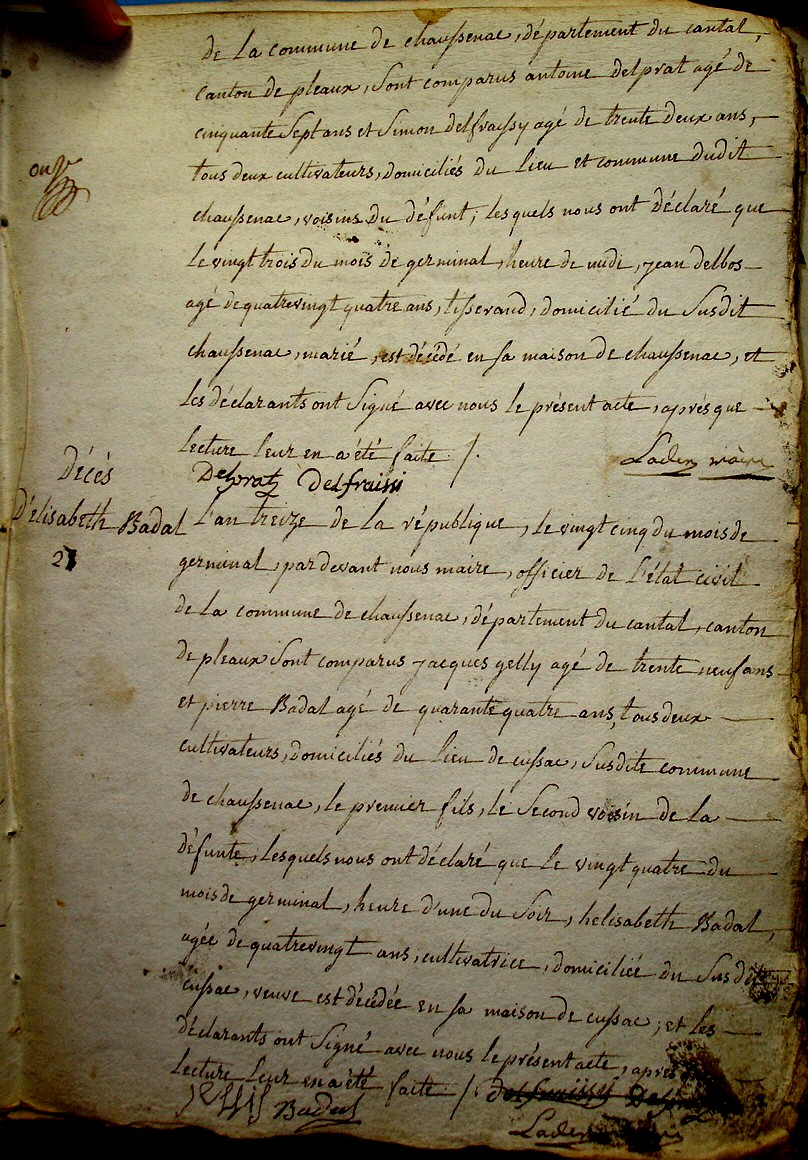 de la commune de chaussenac, département du cantal,
canton de pleaux, sont comparus antoine delprat agé de
cinquante sept ans et Simon delfraissy agé de trente deux ans,
tous deux cultivateurs, domiciliés du lieu et commune dudit
chaussenac, voisins du défunt, lesquels nous ont déclaré que
le vingt trois du mois de germinal, heure de midi, jean delbos
agé de quatrevingt quatre ans, tisserand, domicilié du susdit
chaussenac, marié, est décédé en sa maison de chaussenac, et
les déclarants ont signé avec nous le présent acte, après que
lecture leur en a été faite /.
Laden maire
Delprat Delfraissi
Décès
D'élisabeth Badal
2
L'an treize de la république, le vingt cinq du mois de
germinal, par devant nous maire, officier de l'état civil
de la commune de chaussenac, département du cantal, canton
de pleaux sont comparus jacques gelly agé de trente neuf ans
et pierre Badal agé de quarante quatre ans, tous deux
cultivateurs, domiciliés du lieu de cussac, susdite commune
de chaussenac, le premier fils, le second voisin de la
défunte, lesquels nous ont déclaré que le vingt quatre du
mois de germinal, heure d'une du soir, helisabeth Badal,
agée de quatrevingt ans, cultivatrice, domiciliée du susdit
cussac, veuve est décédée en sa maison de cussac, et les
déclarants ont signé avec nous le présent acte, après
lecture leur en a été faite /.
Badal